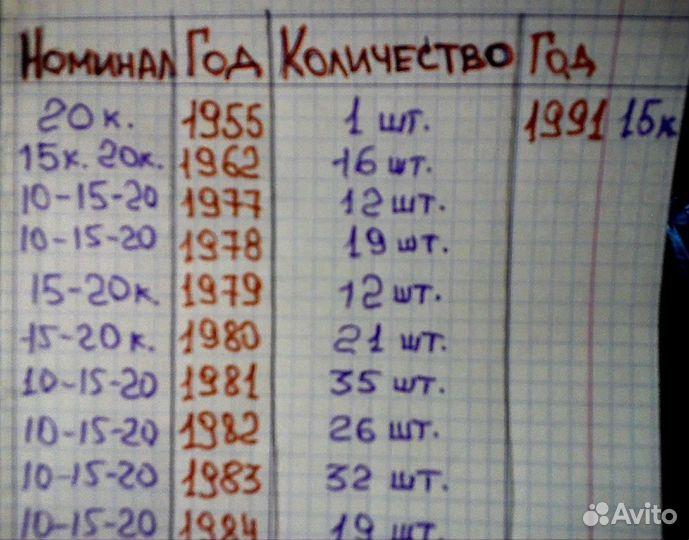 Номинал Год Количество Год
20к. 1955 1 шт. 1991 15к
15к. 20к. 1962 16 шт.
10-15-20 1977 12 шт.
10-15-20 1978 19 шт.
15-20к. 1979 12 шт.
15-20к. 1980 21 шт.
10-15-20 1981 35 шт.
10-15-20 1982 26 шт.
10-15-20 1983 32 шт.
10-15-20 1984 19 шт.
Avito